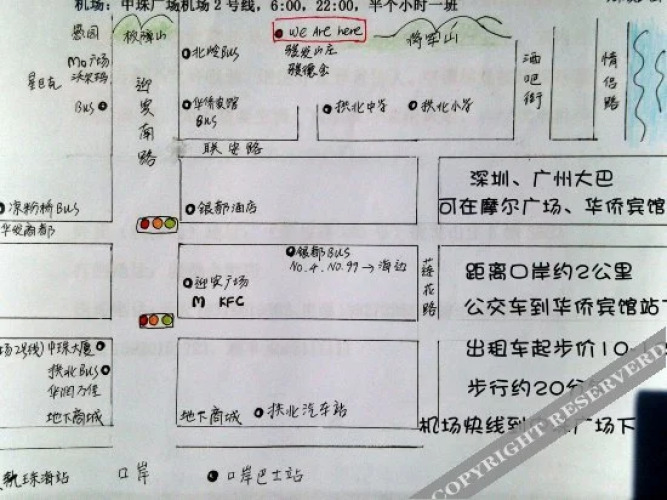 机场：中珠广场机场2号线，6:00，22:00，半个小时一班
板障山
We Are here
将军山
北岭BUS
Mo广场
沃尔玛
星巴克
BUS
迎宾南路
华侨宾馆
BUS
拱北中学
拱北小学
酒吧街
情侣路
联安路
凉粉桥BUS
银都酒店
深圳、广州大巴
可在摩尔广场、华侨宾馆
银都BUS
NO.4.NO.99→海边
迎宾广场
M KFC
莲花路
距离口岸约2公里
公交车到华侨宾馆站
中珠大厦
拱北BUS
华润万佳
地下商城
地下商城
拱北汽车站
出租车起步价10
步行约20分
机场快线到
广场下
珠海站
口岸
口岸巴士站
COPYRIGHT RESERVERD